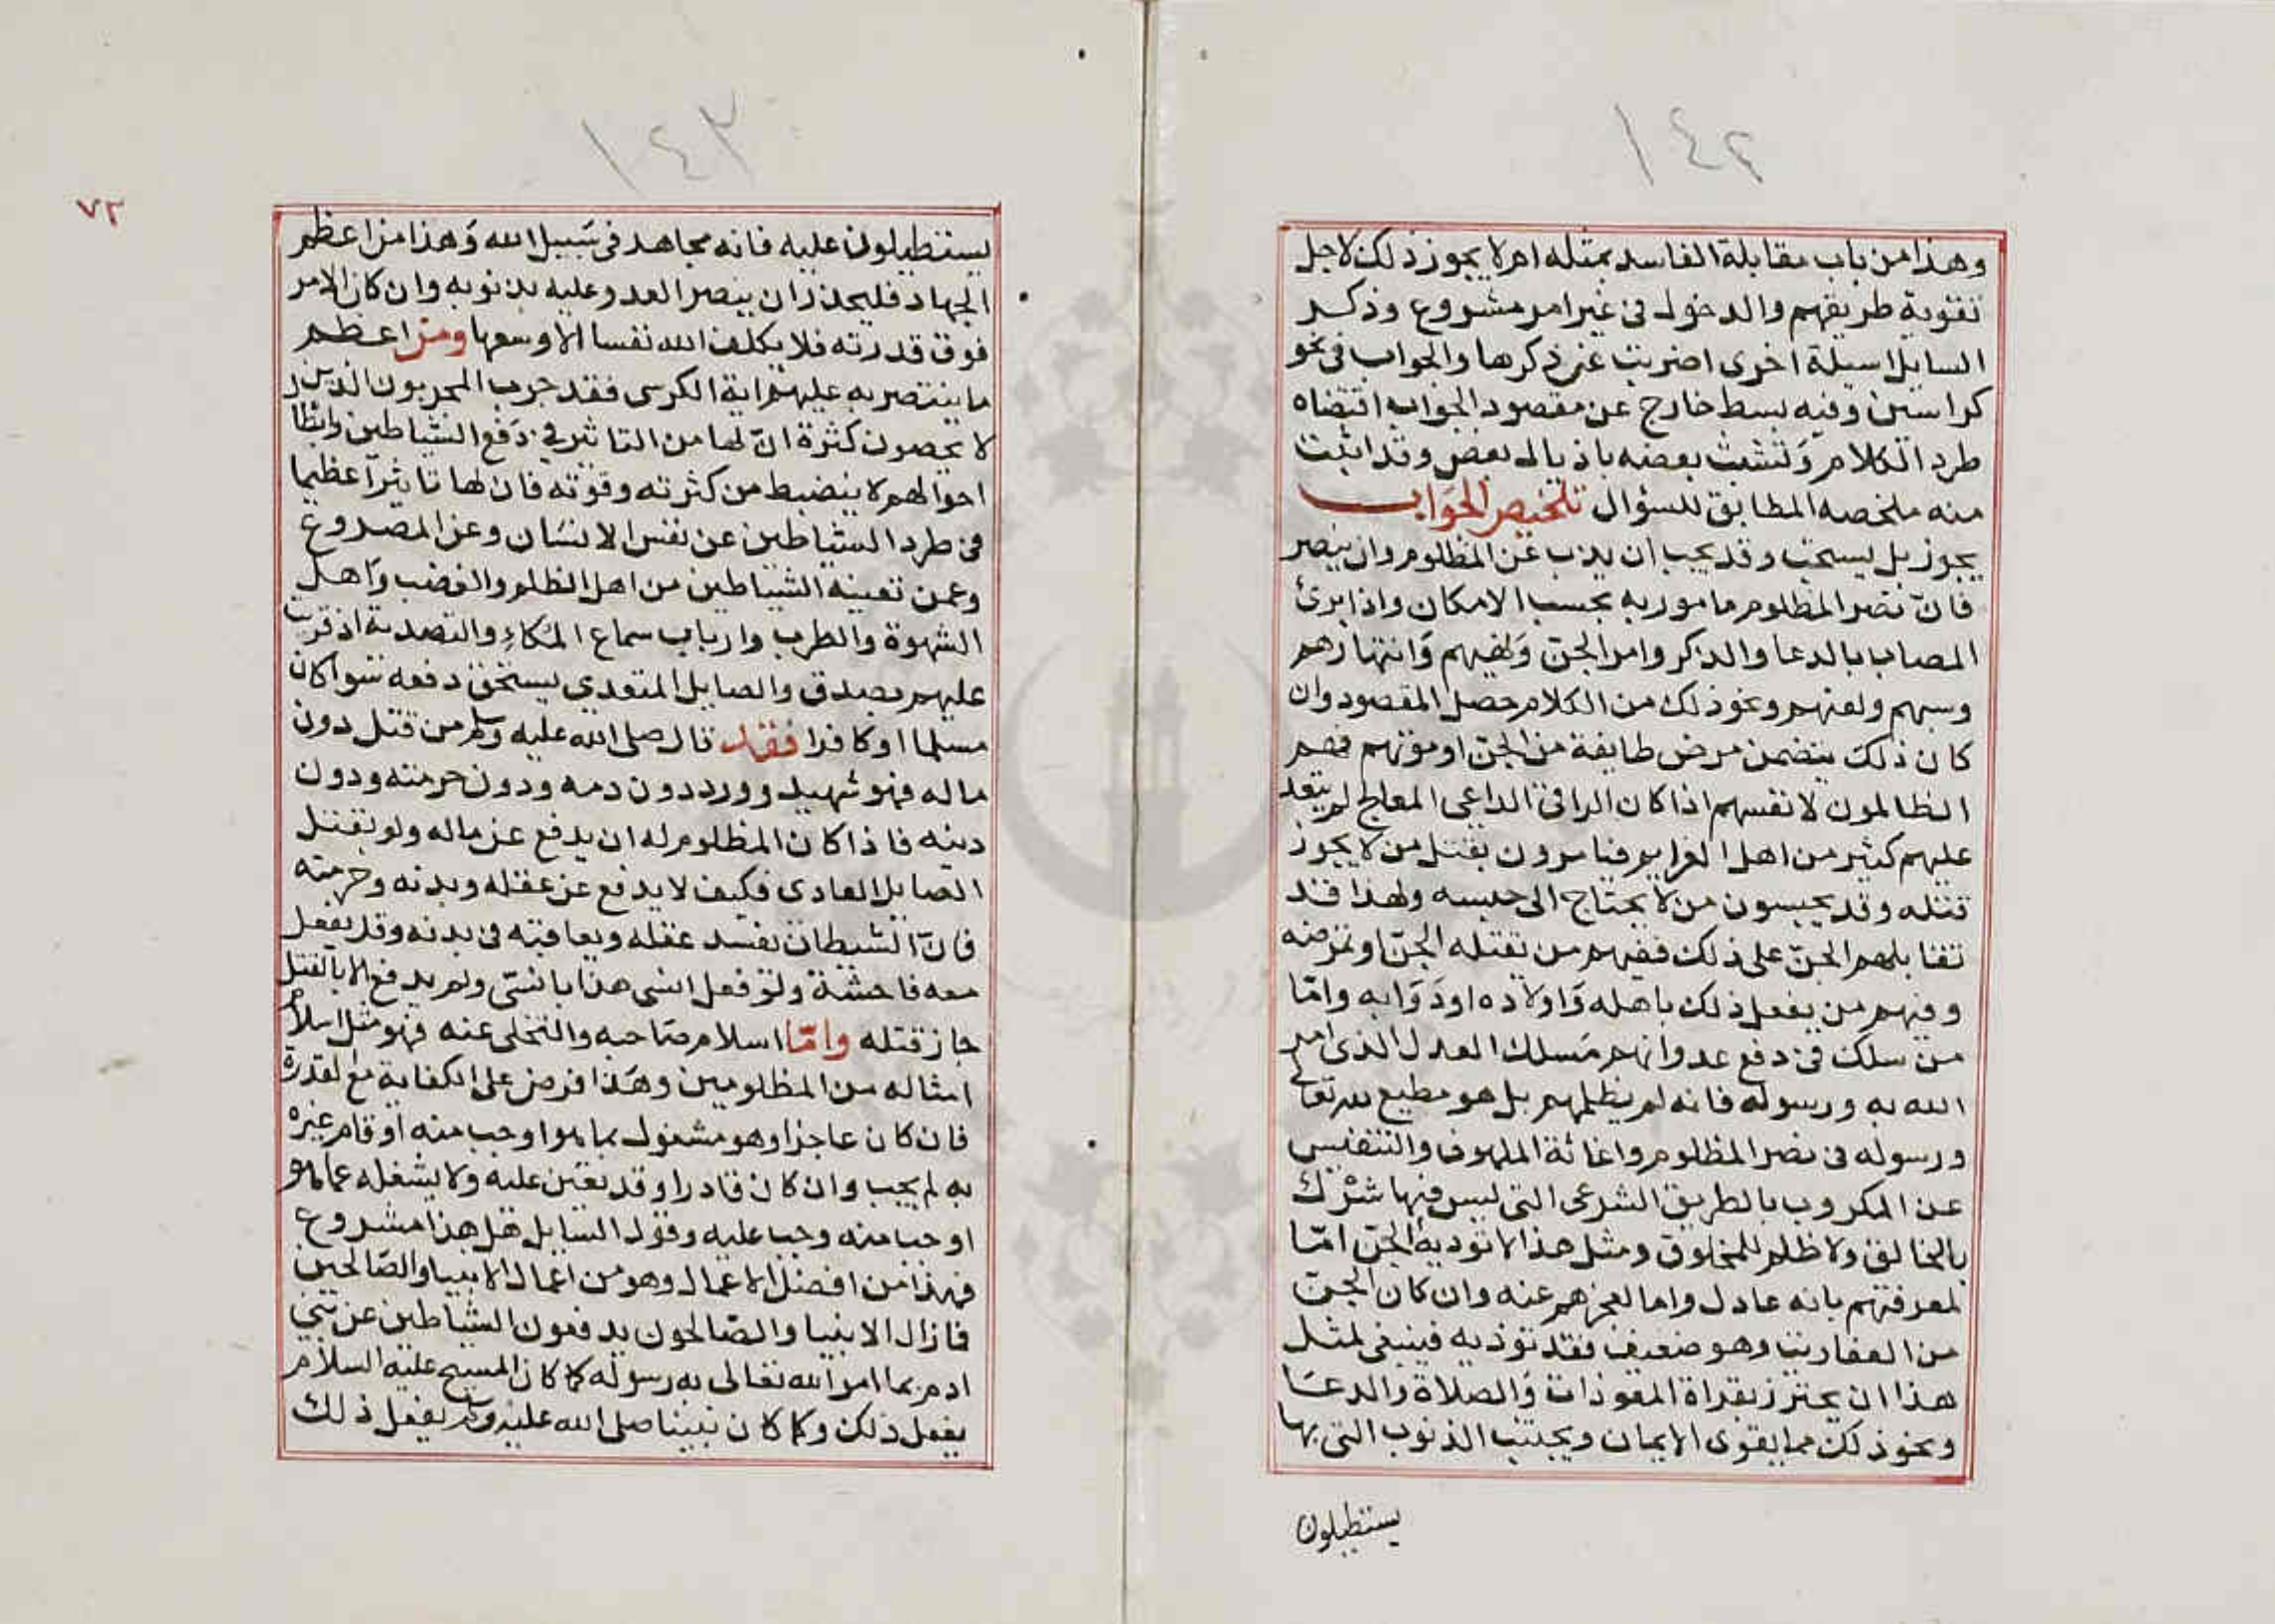 ١٤٢
وهذا من باب مقابلة الفاسد بمثله ام لا يجوز ذلك لاجل
تقوية طريقهم والدخول في غير امر مشروع وذكر
السايل اسيلة اخرى اضربت عن ذكرها والجواب في نحو
كراستين وفيه بسط خارج عن مقصود الجواب اقتضاه
طرد الكلام وتشبث بعضه باذيال بعض وقد اثبت
منه ملخصه المطابق للسؤال تلخيص الجواب
يجوز بل يستحب وقد يجب ان يذب عن المظلوم وان ينصر
فان نصر المظلوم مامور به بحسب الامكان واذا برئ
المصاب بالدعا والذكر وامر الجن ونهيهم وانتهارهم
وسبهم ولعنهم ونحو ذلك من الكلام حصل المقصود وان
كان ذلك يتضمن مرض طايفة من الجن او موتهم فهم
الظالمون لانفسهم اذا كان الراقي الداعي المعالج لم يتعد
عليهم كثير من اهل العزايم فيامرون بقتل من لا يجوز
قتله وقد يحبسون من لا يحتاج الى حبسه ولهذا قد
تقابلهم الجن على ذلك ففيهم من تقتله الجن او تمرضه
وفيهم من يفعل ذلك باهله واولاده او دوابه واما
من سلك في دفع عدوانهم مسلك العدل الذي امر
الله به ورسوله فانه لم يظلمهم بل هو مطيع لله تعالى
ورسوله في نصر المظلوم واغاثة الملهوف والتنفيس
عن المكروب بالطريق الشرعي التي ليس فيها شرك
بالخالق ولا ظلم للمخلوق ومثل هذا لا توذيه الجن اما
لمعرفتهم بانه عادل واما لعجزهم عنه وان كان الجن
من العفاريت وهو ضعيف فقد توذيه فينبغي لمثل
هذا ان يحترز بقراة المعوذات والصلاة والدعا
ونحو ذلك مما يقوي الايمان ويجتنب الذنوب التي بها
يستطيلون
١٤٣
٧٢
يستطيلون عليه فانه مجاهد في سبيل الله وهذا من اعظم
الجهاد فليحذر ان ينصر العدو عليه بذنوبه وان كان الامر
فوق قدرته فلا يكلف الله نفسا الا وسعها ومن اعظم
ما ينتصر به عليهم اية الكرسي فقد جرب المجربون الذين
لا يحصون كثرة ان لها من التاثير في دفع الشياطين وابطال
احوالهم لا ينضبط من كثرته وقوته فان لها تاثيرا عظيما
في طرد الشياطين عن نفس الانسان وعن المصروع
وعمن تعينه الشياطين من اهل الظلم والغضب واهل
الشهوة والطرب وارباب سماع المكاء والتصدية اذ قريت
عليهم بصدق والصايل المتعدي يستحق دفعه سوا كان
مسلما او كافرا فقد قال صلى الله عليه وسلم من قتل دون
ماله فهو شهيد وورد دون دمه ودون حرمته ودون
دينه فاذا كان المظلوم له ان يدفع عن ماله ولو بقتل
الصايل العادي فكيف لا يدفع عن عقله وبدنه وحرمته
فان الشيطان يفسد عقله ويعاقبه في بدنه وقد يفعل
معه فاحشة ولو فعل انسي هذا بانسي ولم يدفع الا بالقتل
جاز قتله واما اسلام صاحبه والتخلي عنه فهو مثل اسلام
امثاله من المظلومين وهذا فرض على الكفاية مع القدرة
فان كان عاجزا وهو مشغول بما هو اوجب منه او قام غيره
به لم يجب وان كان قادرا وقد تعين عليه ولا يشغله عما هو
اوجب منه وجب عليه وقول السايل هل هذا مشروع
فهذا من افضل الاعمال وهو من اعمال الانبيا والصالحين
فما زال الانبيا والصالحون يدفعون الشياطين عن بني
ادم بما امر الله تعالى به رسوله كما كان المسيح عليه السلام
يفعل ذلك وكما كان نبينا صلى الله عليه وسلم يفعل ذلك